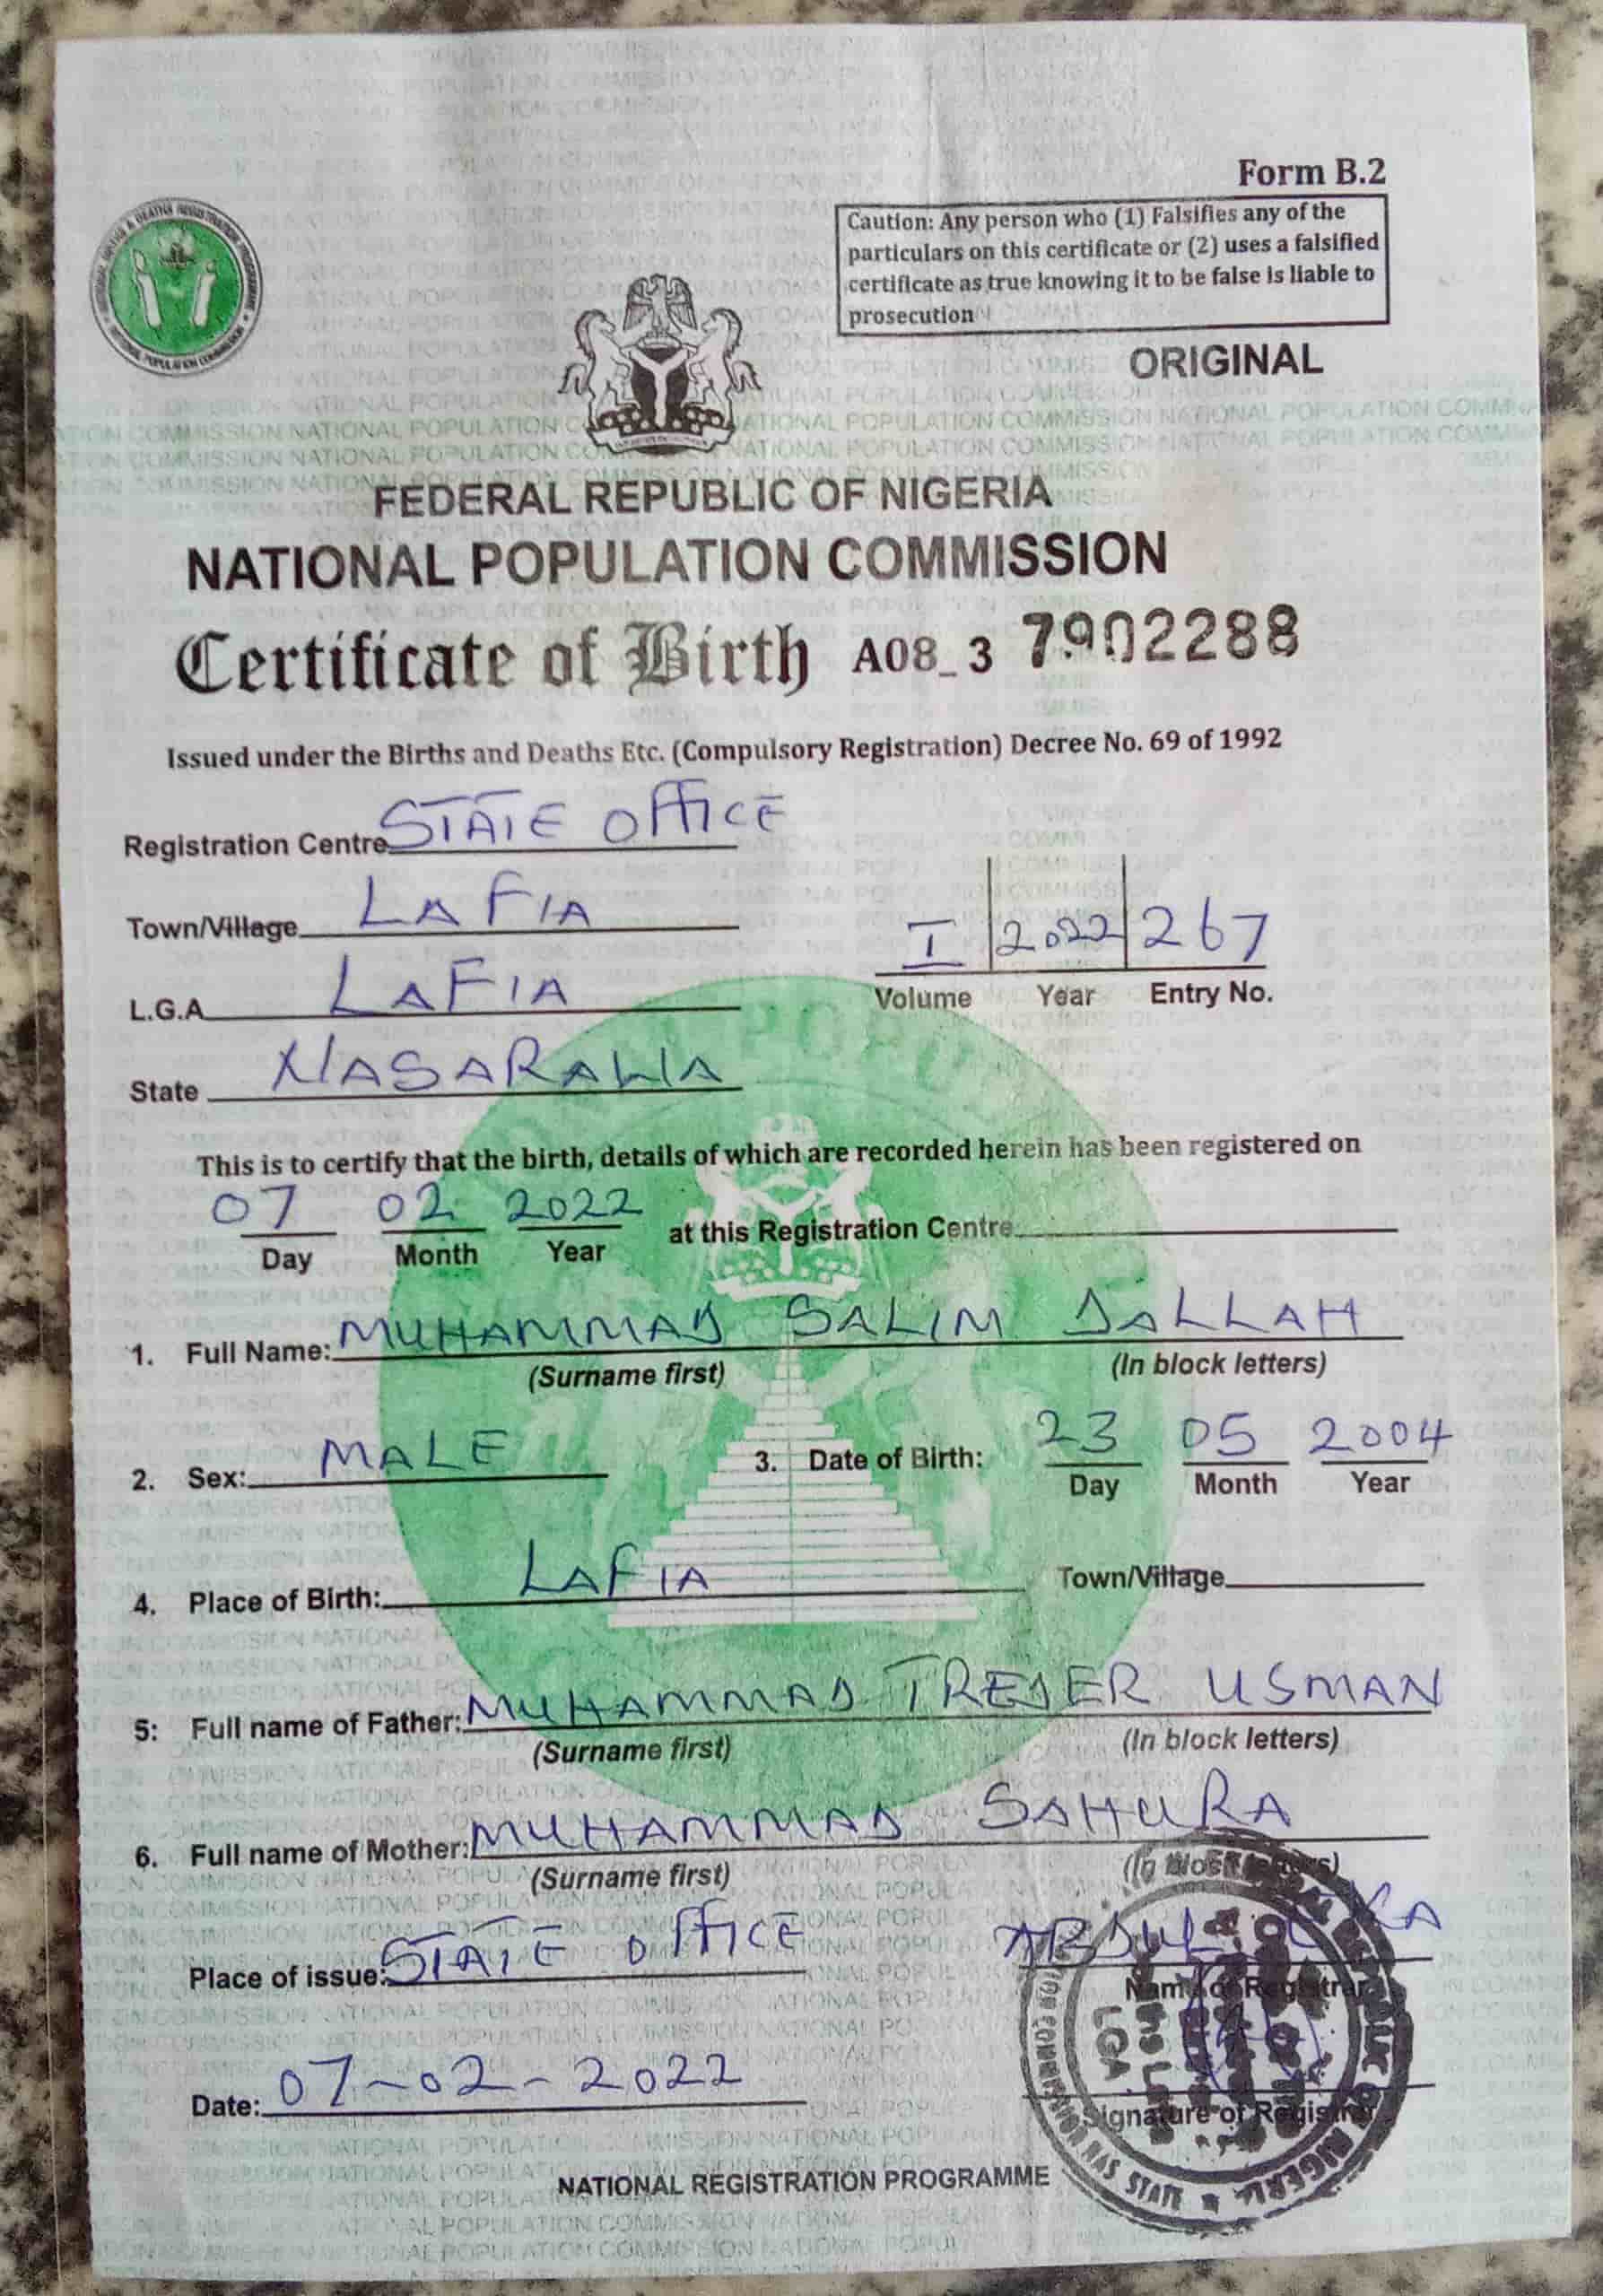 Form B.2
Caution: Any person who (1) Falsifies any of the
particulars on this certificate or (2) uses a falsified
certificate as true knowing it to be false is liable to
prosecution
ORIGINAL
FEDERAL REPUBLIC OF NIGERIA
NATIONAL POPULATION COMMISSION
Certificate of Birth A08_3 7902288
Issued under the Births and Deaths Etc. (Compulsory Registration) Decree No. 69 of 1992
Registration Centre STATE OFFICE
Town/Village LAFIA
L.G.A LAFIA
I 2022 267
Volume Year Entry No.
State NASARAWA
This is to certify that the birth, details of which are recorded herein has been registered on
07 02 2022 at this Registration Centre
Day Month Year
1. Full Name: MUHAMMAD SALIM DALLAH
(Surname first) (In block letters)
2. Sex: MALE 3. Date of Birth: 23 05 2004
Day Month Year
4. Place of Birth: LAFIA Town/Village
5: Full name of Father: MUHAMMAD TREDER USMAN
(Surname first) (In block letters)
6. Full name of Mother: MUHAMMAD SAHURA
(Surname first) (In block letters)
Place of issue: STATE OFFICE ABDUL
Name of Registrar
Date: 07-02-2022
Signature of Registrar
NATIONAL REGISTRATION PROGRAMME